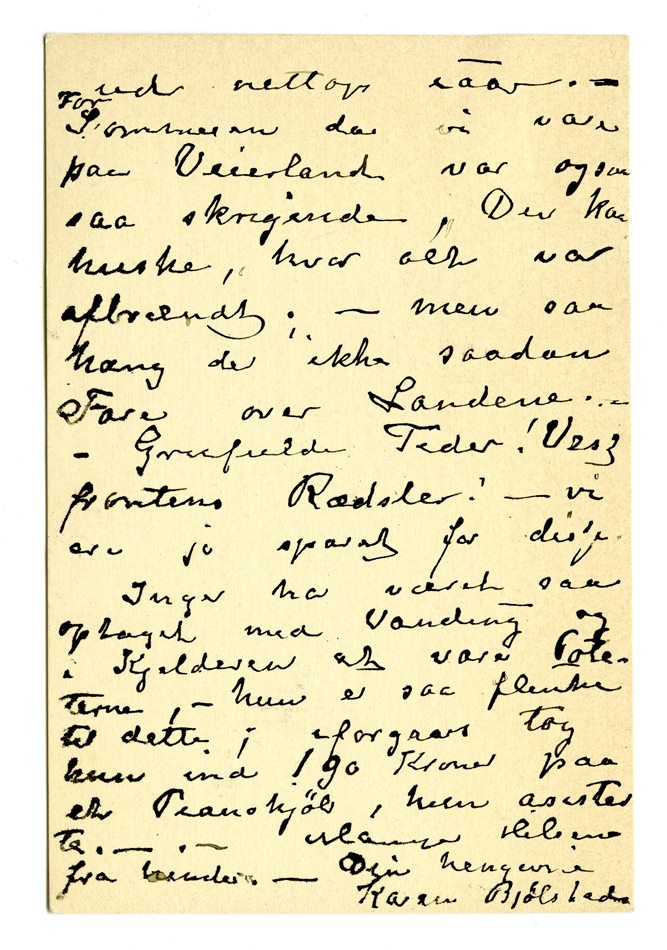 ud nettop iaar. —
For
Sommeren da vi vare
paa Veierland var ogsaa
saa skrigende, Du kan
huske, hvor alt var
afbrændt; — men saa
hang der ikke saadan
Fare over Landene. —
— Grufulde Tider! Vest
frontens Rædsler! — vi
ere jo sparet for disse.
Inger har været saa
optaget med Vanding og
i Kjelderen at vare Pote-
terne, — hun er saa flink
til dette; iforgaars tog
hun ind 190 Kroner paa
et Pianokjøb, hun assister
te. — . — Mange Hilsene
fra hende. — Din hengivne
Karen Bjølstad